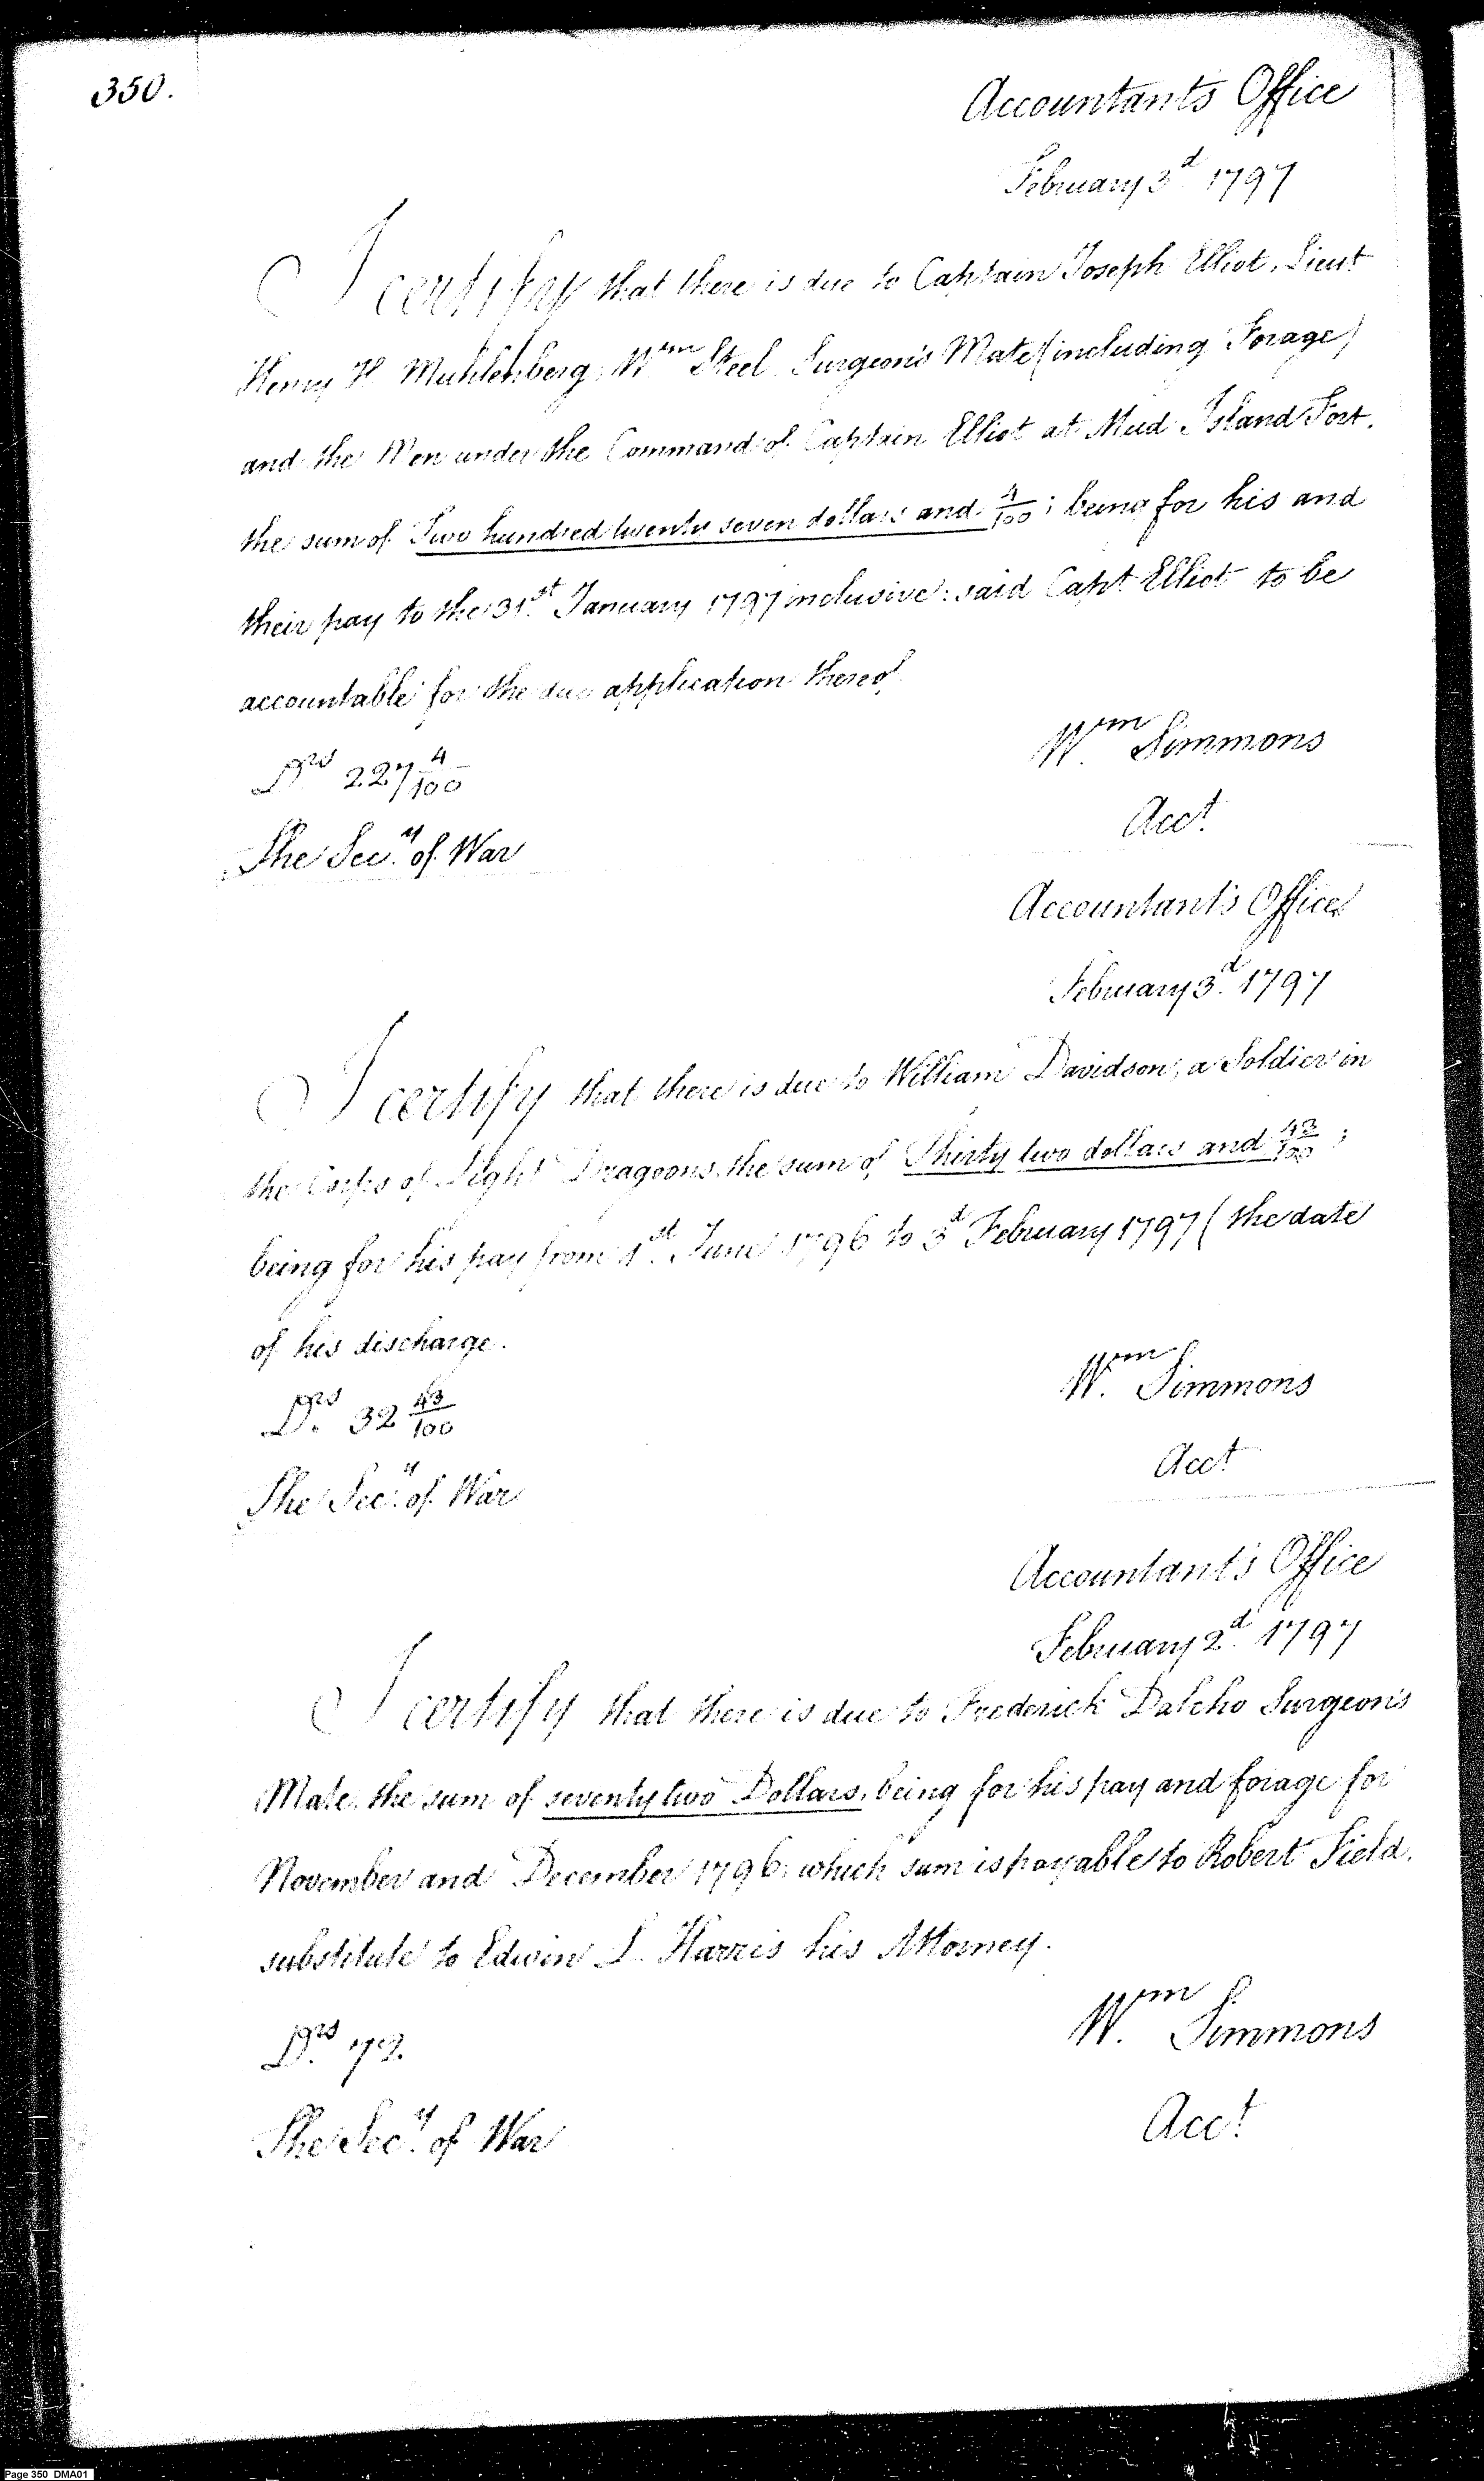 350.
Accountants Office
February 3d 1797
I certify that there is due to Captain Joseph Elliot, Lieut
Henry H Muhlenberg, Wm Steel Surgeon's Mate (including Forage)
and the Men under the Command of Captain Elliot at Mud Island Fort.
the sum of Two hundred twenty seven dollars and 4/100; being for his and
their pay to the 31st January 1797 inclusive: said Capt Elliot to be
accountable for the due application thereof
Drs 227 4/100
Wm Simmons
Acct
The Secy of War
Accountant's Office
February 3d 1797
I certify that there is due to William Davidson, a Soldier in
the Corps of Light Dragoons, the sum of Thirty two dollars and 43/100;
being for his pay from 1st June 1796 to 3d February 1797 (the date
of his discharge.
Drs 32 43/100
Wm Simmons
Acct
The Secy of War
Accountant's Office
February 2d 1797
I certify that there is due to Frederick Dalcho Surgeon's
Mate, the sum of seventy two Dollars, being for his pay and forage for
November and December 1796, which sum is payable to Robert Field,
substitute to Edwin L. Harris his Attorney.
Drs 72.
Wm Simmons
Acct
The Secy of War
Page 350 DMA01